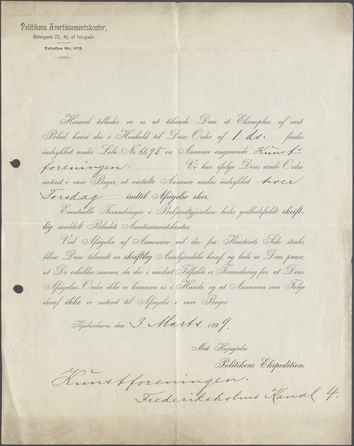 Politikens Avertissementskontor,
Telefon Nr.
Herved tillader vi os at tilsende Dem et Exemplar af vort
Blad, hvori der i Henhold til Deres Ordre af 1 ds. findes
indrykket under Løbe Nr. 6695 en Annonce angaaende Kunst-
foreningen. Vi har ifølge Deres ærede Ordre
noteret i vore Bøger, at omtalte Annonce endnu indrykkes hver
Torsdag indtil Afsigelse sker.
Eventuelle Forandringer i Bestemmelserne bedes godhedsfuldt skrift-
lig meddelt Bladets Avertissementskontor.
Ved Afsigelse af Annoncen vil der fra Kontorets Side straks
blive Dem tilsendt en skriftlig Anerkjendelse heraf og bede vi Dem paase,
at De erholder samme, da der i modsat Tilfælde er Formodning for, at Deres
Afsigelses Ordre ikke er kommen os i Hænde og at Annoncen som Følge
deraf ikke er noteret til Afsigelse i vore Bøger.
Kjøbenhavn, den 3 Marts 189
Med Højagtelse
Politikens Ekspedition.
Kunstforeningen.
Frederiksholms Kanal 4.